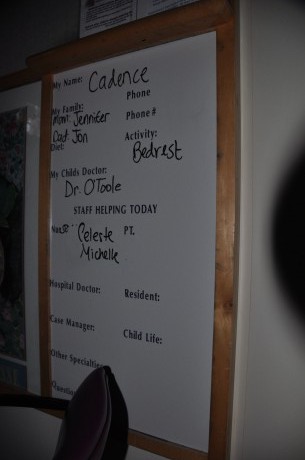 My Name: Cadence
Phone
My Family:
Mom: Jennifer Phone#
Dad: Jon Activity:
Diet: Bedrest
My Childs Doctor:
Dr. O'Toole
STAFF HELPING TODAY
Nurse: Celeste PT.
Michelle
Hospital Doctor: Resident:
Case Manager: Child Life:
Other Specialties